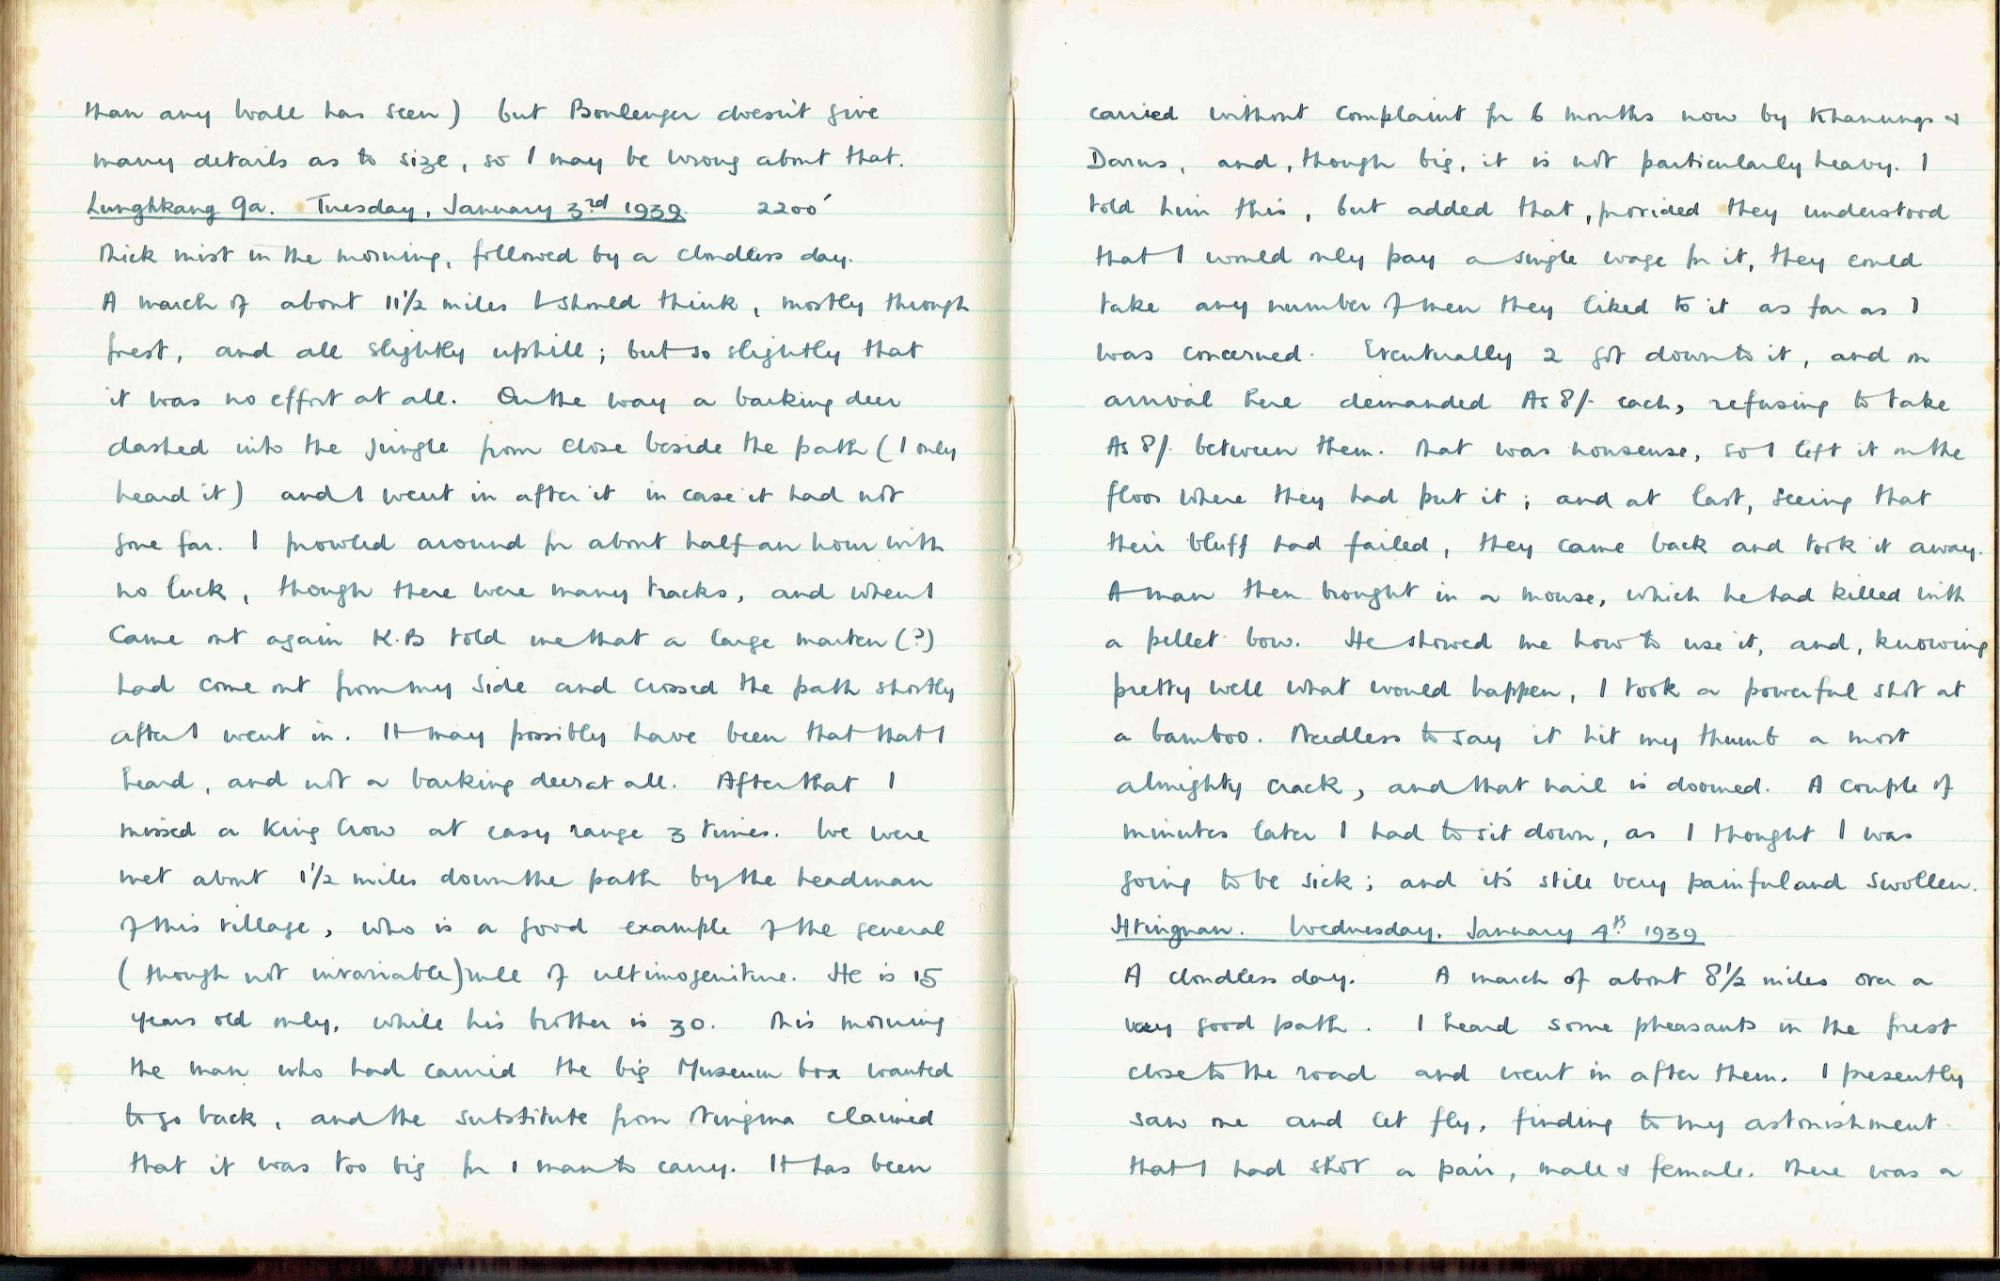 than any Wall has seen) but Boulenger doesn't give
many details as to size, so I may be wrong about that.
Lunghkang Ga. Tuesday, January 3rd 1939. 2200'
Thick mist in the morning, followed by a cloudless day.
A march of about 11½ miles I should think, mostly through
forest, and all slightly uphill; but so slightly that
it was no effort at all. On the way a barking deer
dashed into the jungle from close beside the path (I only
heard it) and I went in after it in case it had not
gone far. I prowled around for about half an hour with
no luck, though there were many tracks, and when I
came out again K.B told me that a large marten (?)
had come out from my side and crossed the path shortly
after I went in. It may possibly have been that that I
heard, and not a barking deer at all. After that I
missed a King Crow at easy range 3 times. We were
met about 1½ miles down the path by the headman
of this village, who is a good example of the general
(though not invariable) rule of ultimogeniture. He is 15
years old only, while his brother is 30. This morning
the man who had carried the big Museum box wanted
to go back, and the substitute from Ningma claimed
that it was too big for 1 man to carry. It has been
carried without complaint for 6 months now by Khanungs &
Darus, and, though big, it is not particularly heavy. I
told him this, but added that, provided they understood
that I would only pay a single wage for it, they could
take any number of men they liked to it as far as I
was concerned. Eventually 2 got down to it, and on
arrival here demanded As 8/- each, refusing to take
As 8/- between them. That was nonsense, so I left it on the
floor where they had put it; and at last, seeing that
their bluff had failed, they came back and took it away.
A man then brought in a mouse, which he had killed with
a pellet bow. He showed me how to use it, and, knowing
pretty well what would happen, I took a powerful shot at
a bamboo. Needless to say it hit my thumb a most
almighty crack, and that nail is doomed. A couple of
minutes later I had to sit down, as I thought I was
going to be sick; and it's still very painful and swollen.
Htingnan. Wednesday. January 4th 1939
A cloudless day. A march of about 8½ miles over a
very good path. I heard some pheasants in the forest
close to the road and went in after them. I presently
saw one and let fly, finding to my astonishment
that I had shot a pair, male & female. There was a